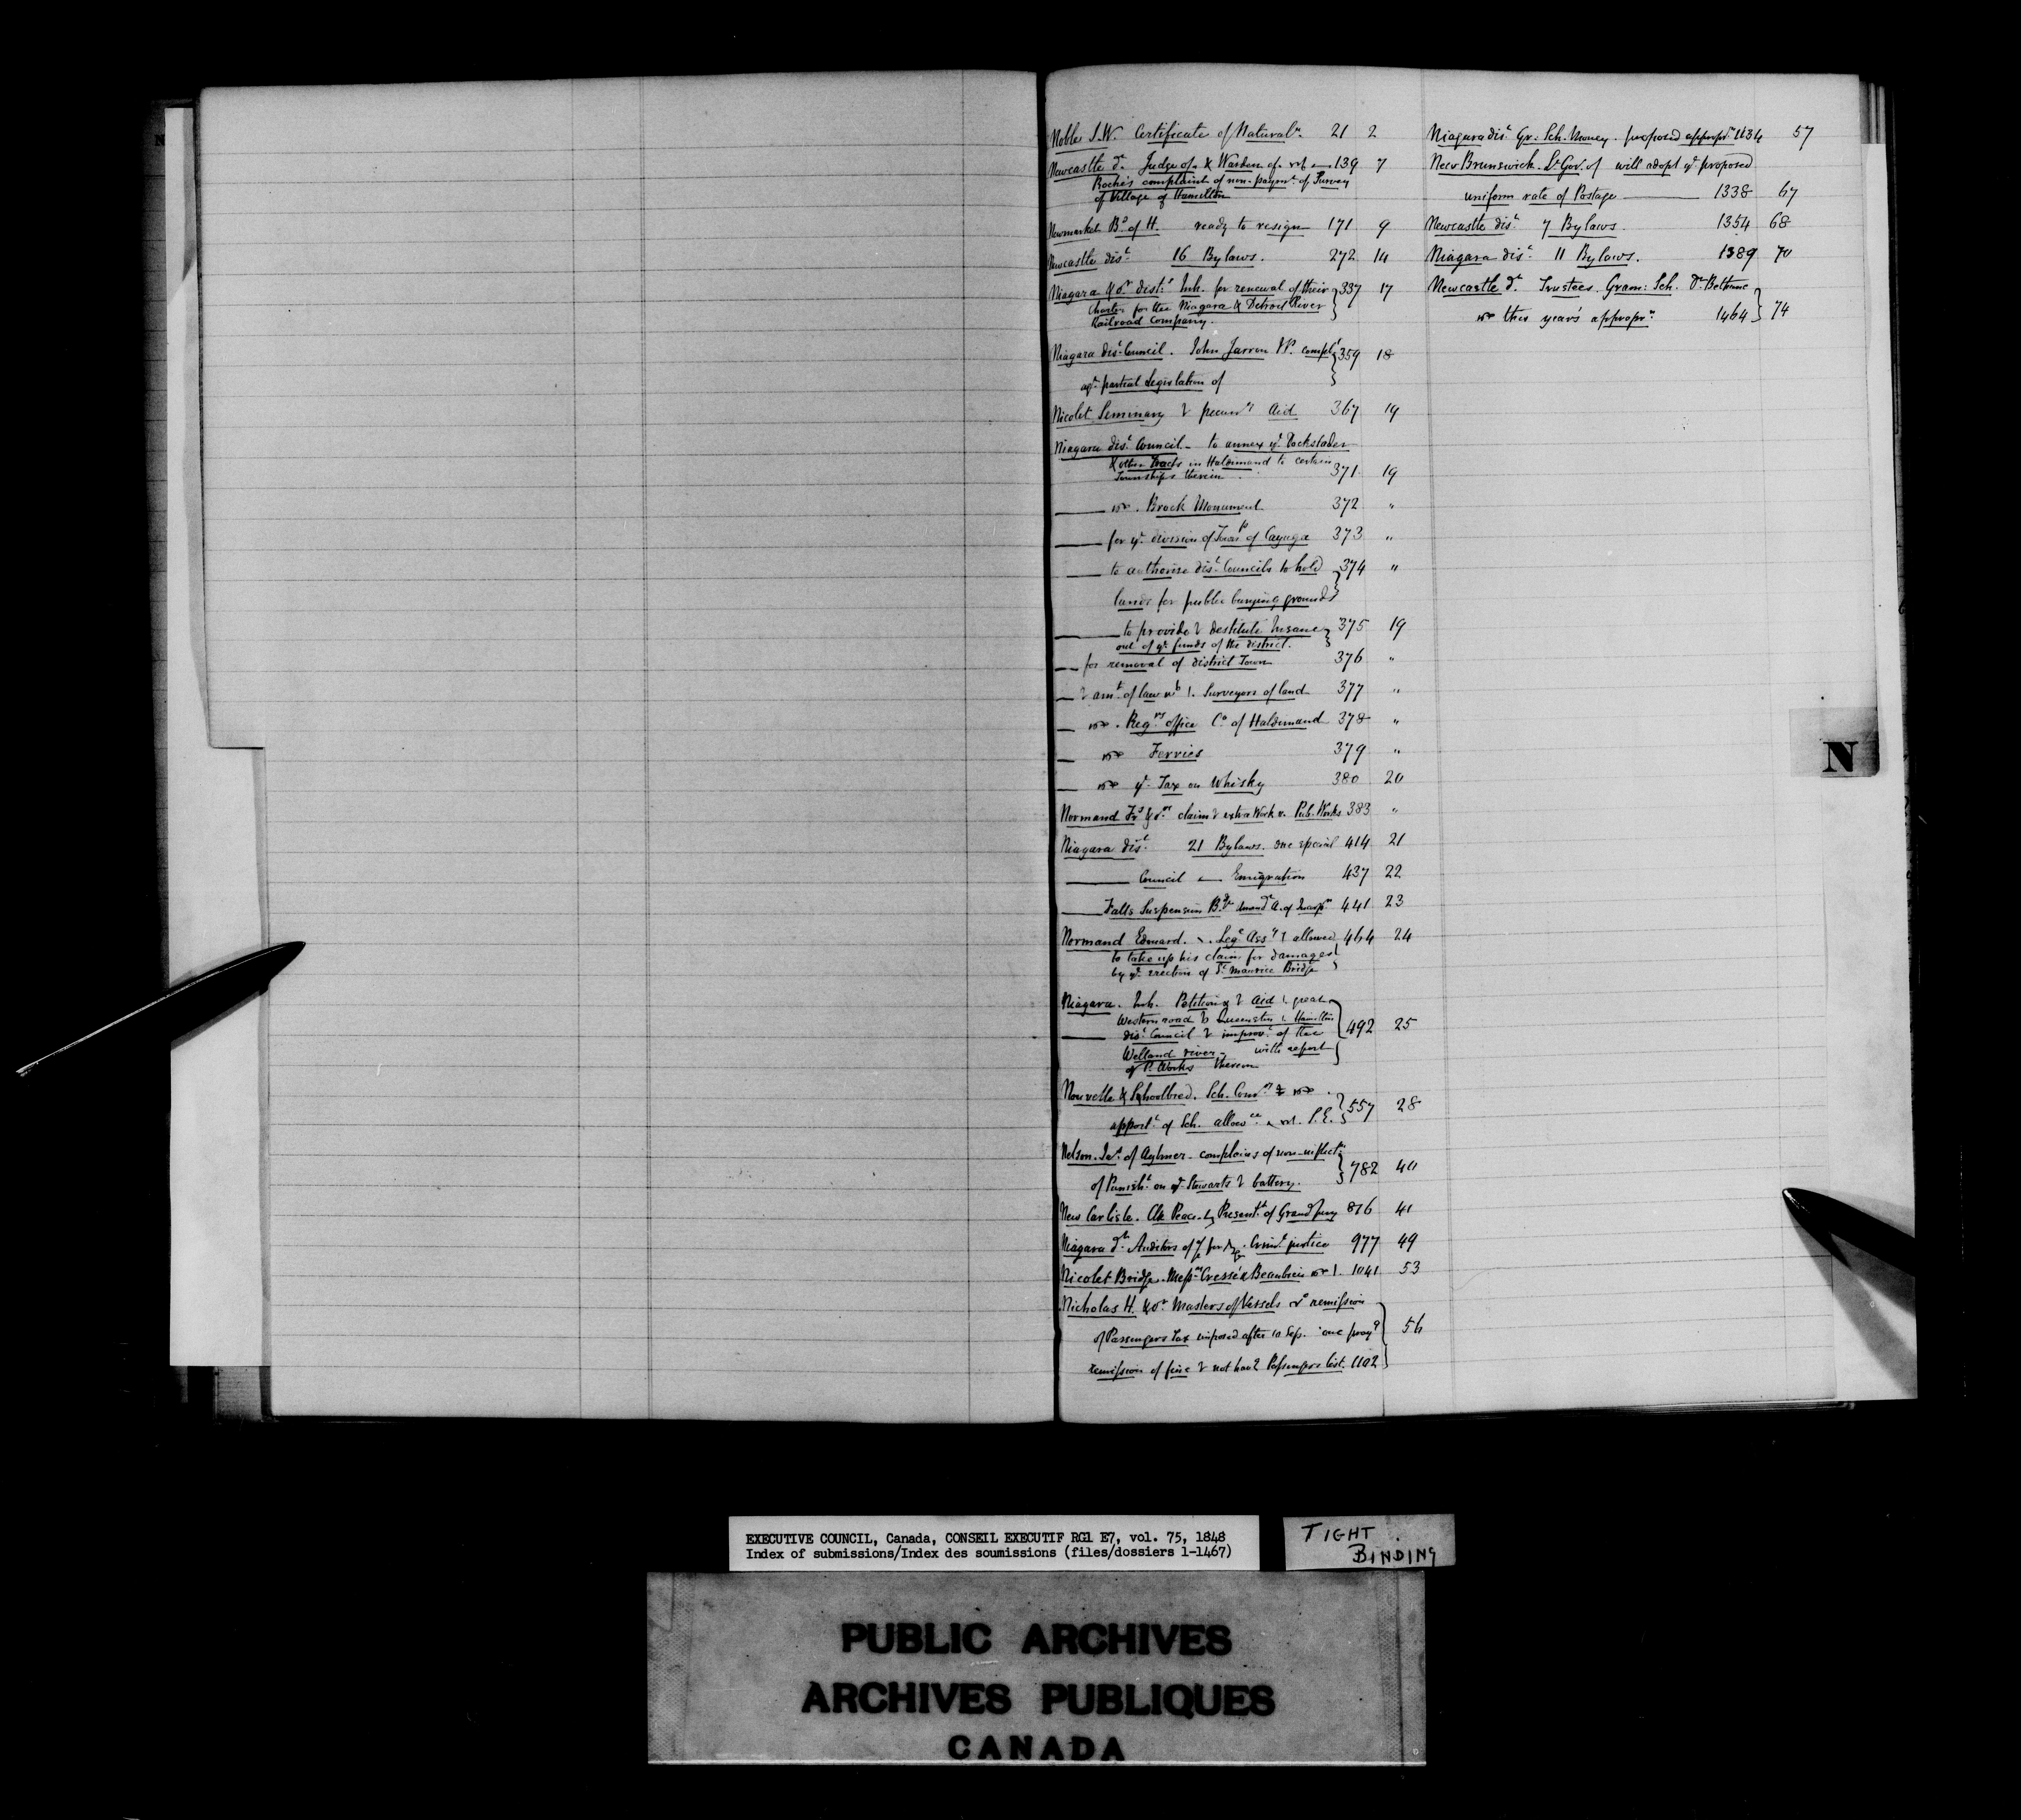 Noble S.W. Certificate of Natural.n 21 2
Newcastle d.t Judge of & Warden of 139 7
Roche's complaint of non-paym.t of Survey
of Village of Hamilton
Newmarket B.d of H. ready to resign 171 9
Newcastle dis.t 16 Bylaws. 272 14
Niagara & o.r dist.ts Inh. for renewal of their 337 17
Charter for the Niagara & Detroit River
Railroad Company.
Niagara dis.t Council. John Jarron compl.t 359 18
ag.t partial Legislation of
Nicolet Seminary pecun.y Aid 367 19
Niagara dis.t Council - to annex y.e Dockstader
& other Tracts in Haldimand to certain
Townships therein 371 19
Brock Monument 372 "
for y.e division of Town.p of Cayuga 373 "
to authorise dis.t Councils to hold 374 "
lands for public burying grounds
to provide destitute Insane 375 19
out of y.e funds of the district.
for removal of district Town 376 "
am.t of law Surveyors of land 377 "
Reg.rs office C.o of Haldimand 378 "
Ferries 379 "
y.e Tax on Whisky 380 20
Normand F.s & o.rs claim extra Work Pub. Works 383 "
Niagara dis.t 21 Bylaws. one special 414 21
Council Emigration 437 22
Falls Suspension B.ge A. of Incorp.n 441 23
Normand Edward. Leg.e Ass.y allowed 464 24
to take up his claim for damages
by y.e erection of S.t Maurice Bridge
Niagara. Inh. Petition Aid great
Western road Queenston Hamilton
dis.t Council improv.t of the 492 25
Welland river with report
of P. Works thereon
Nouvelle & Shoolbred. Sch. Com.rs
apport.t of Sch. allow.ce 557 28
Nelson. of Aylmer - complains of non-inflict.n
of Punish.t on y.e Stewarts battery. 782 40
New Carlisle. Clk Peace Present.t of Grand Jury 876 41
Niagara d.t Auditors of Crim.l justice 977 49
Nicolet Bridge. Mess.rs Cressé & Beaubien 1041 53
Nicholas H. & o.rs Masters of Vessels remission
of Passengers tax imposed after 10 Sep. one pray.g 56
remission of fine not hav.g Passengers list. 1102
Niagara dis.t Gr: Sch. Money. proposed appropr.n 1134 57
New Brunswick. L.t Gov. of will adopt y.e proposed
uniform rate of Postage 1338 67
Newcastle dis.t 7 Bylaws. 1354 68
Niagara dis.t 11 Bylaws. 1389 70
Newcastle d.t Trustees Gram: Sch. D.r Bethune
this year's appropr.n 1464 74
N
EXECUTIVE COUNCIL, Canada, CONSEIL EXECUTIF RG1 E7, vol. 75, 1848
Index of submissions/Index des soumissions (files/dossiers 1-1467)
TIGHT
BINDING
PUBLIC ARCHIVES
ARCHIVES PUBLIQUES
CANADA